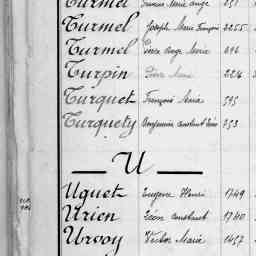 Turmel Marie Ange 251
Turmel Joseph Marie François 3255
Turmel Pierre Ange Marie 696
Turpin Pierre Marie 224
Turquet François Marie 595
Turquety Benjamin Constant 753
U
Uguet Eugène Henri 1749
Urien Léon Constant 1740
Urvoy Victor Marie 1457